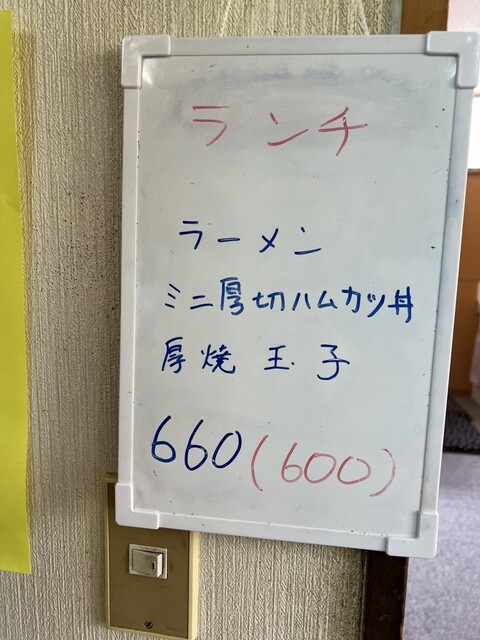 ランチ
ラーメン
ミニ厚切ハムカツ丼
厚焼玉子
660(600)